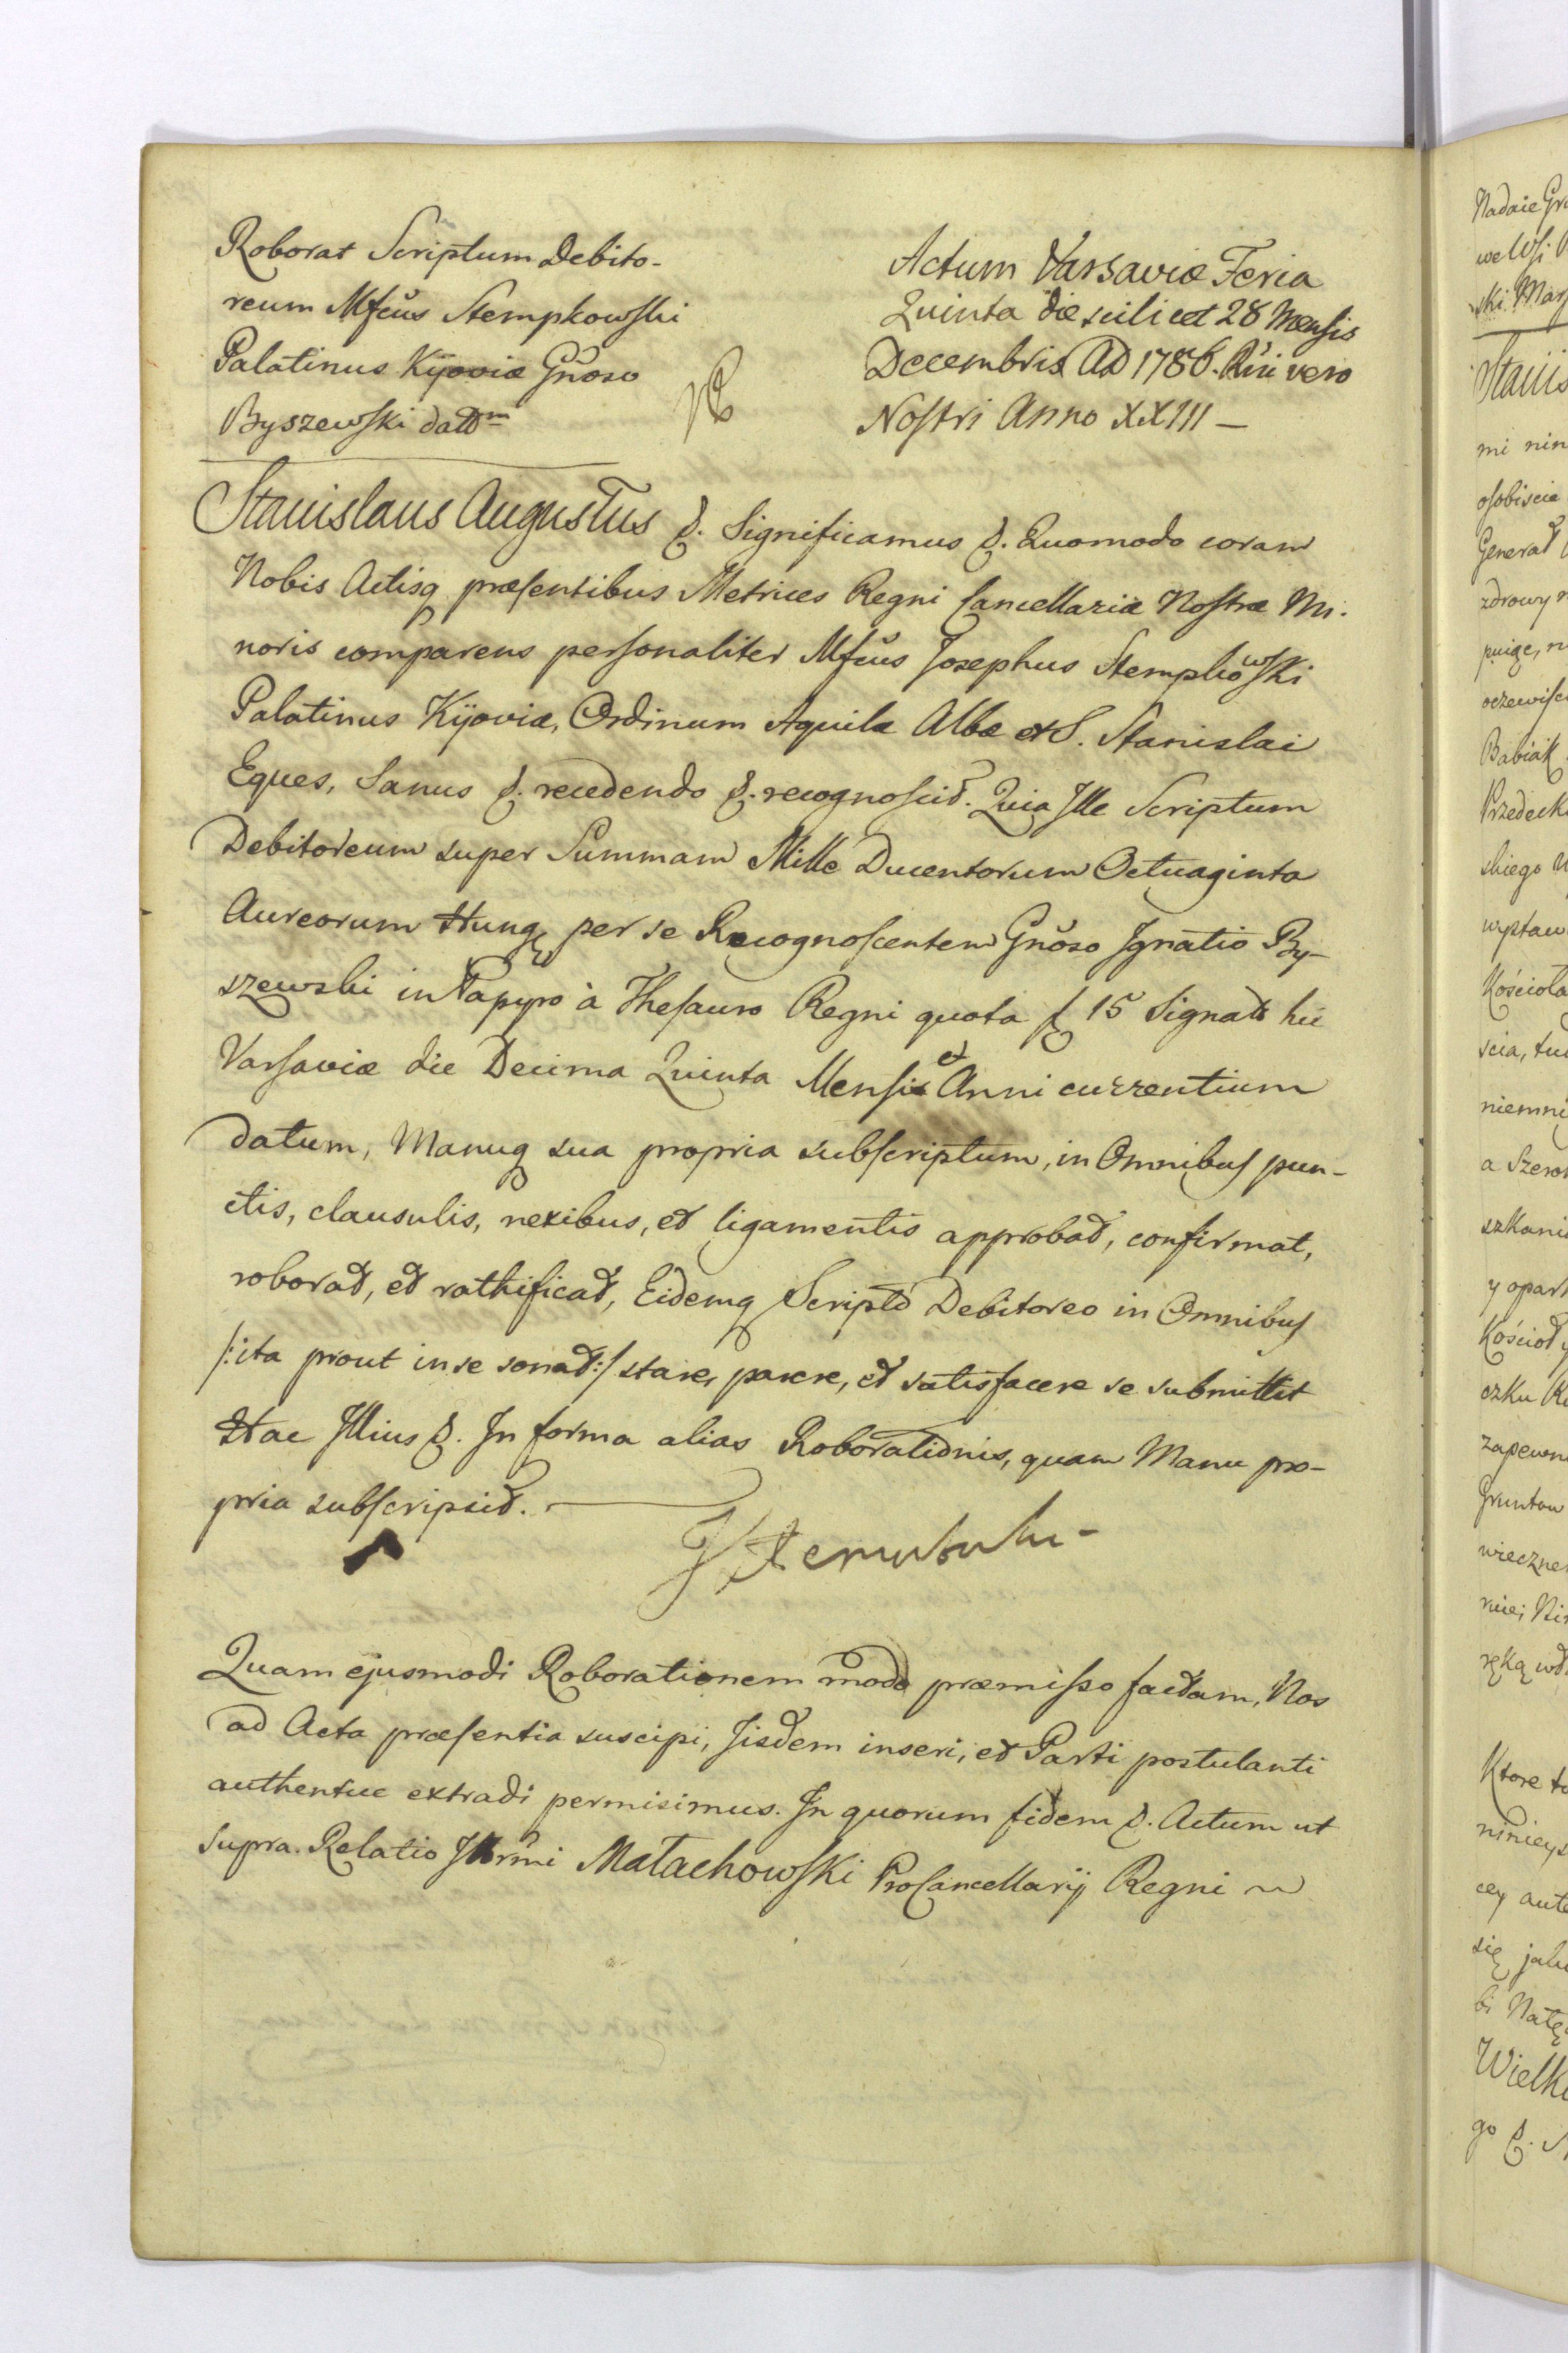 Roborat Scriptum Debito-
reum Mfcus Stempkowski
Palatinus Kijoviæ Gnoso
Byszewski datm
Actum Varsaviæ Feria
Quinta die scilicet 28 Mensis
Decembris AD 1786. Rni vero
Nostri Anno XXIII —
Stanislaus Augustus &. Significamus &. Quomodo coram
Nobis Actisq præsentibus Metrices Regni Cancellariæ Nostræ Mi-
noris comparens personaliter Mfcus Josephus Stempkowski
Palatinus Kijoviæ, Ordinum Aquilæ Albæ et S. Stanislai
Eques, Sanus &. recedendo &. recognoscit. Quia Ille Scriptum
Debitoreum super Summam Mille Ducentorum Octuaginta
Aureorum Hung per se Recognoscentem Gnoso Ignatio By-
szewski in Papyro à Thesauro Regni quota f 15 Signato hic
Varsaviæ die Decima Quinta Mensis et Anni currentium
datum, Manuq sua propria subscriptum, in Omnibus pun-
ctis, clausulis, nexibus, et ligamentis approbat, confirmat,
roborat, et rathificat, Eidemq Scripto Debitoreo in Omnibus
/:ita prout in se sonat:/ stare, parere, et satisfacere se submittit
Hac Illius &. In forma alias Roborationis, quam Manu pro-
pria subscripsit.
Quam ejusmodi Roborationem modo præmisso factam, Nos
ad Acta præsentia suscipi, Iisdem inseri, et Parti postulanti
authentice extradi permisimus. In quorum fidem &. Actum ut
supra. Relatio Illrmi Małachowski ProCancellarij Regni
Nadaie
we Wsi
ski
mi nin
osobiscie
General
zdrowy
oczewisc
Babiak
Przedeck
skiego
Kościoła
scia,
niemni
a
szkani
y
Kościoł
czku
zapewn
Gruntow
wieczne
ręką
Ktore
niniey
cey
się
bi
Wielk
go &.